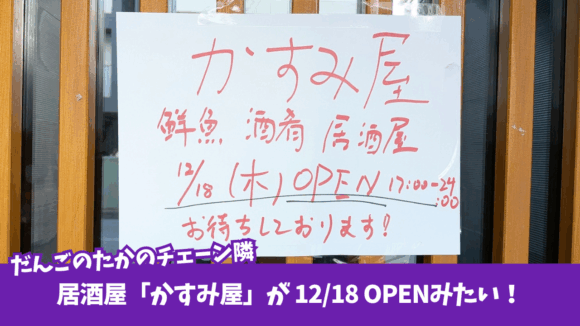 かすみ屋
鮮魚 酒肴 居酒屋
12/18 (木) OPEN 17:00-24:00
お待ちしております!
だんごのたかのチェーン隣
居酒屋「かすみ屋」が 12/18 OPENみたい！